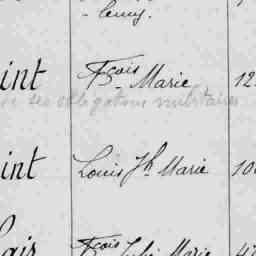 int Fçois Marie 12
se obligations militaires
int Louis Jh Marie 10
air Fçois Marie